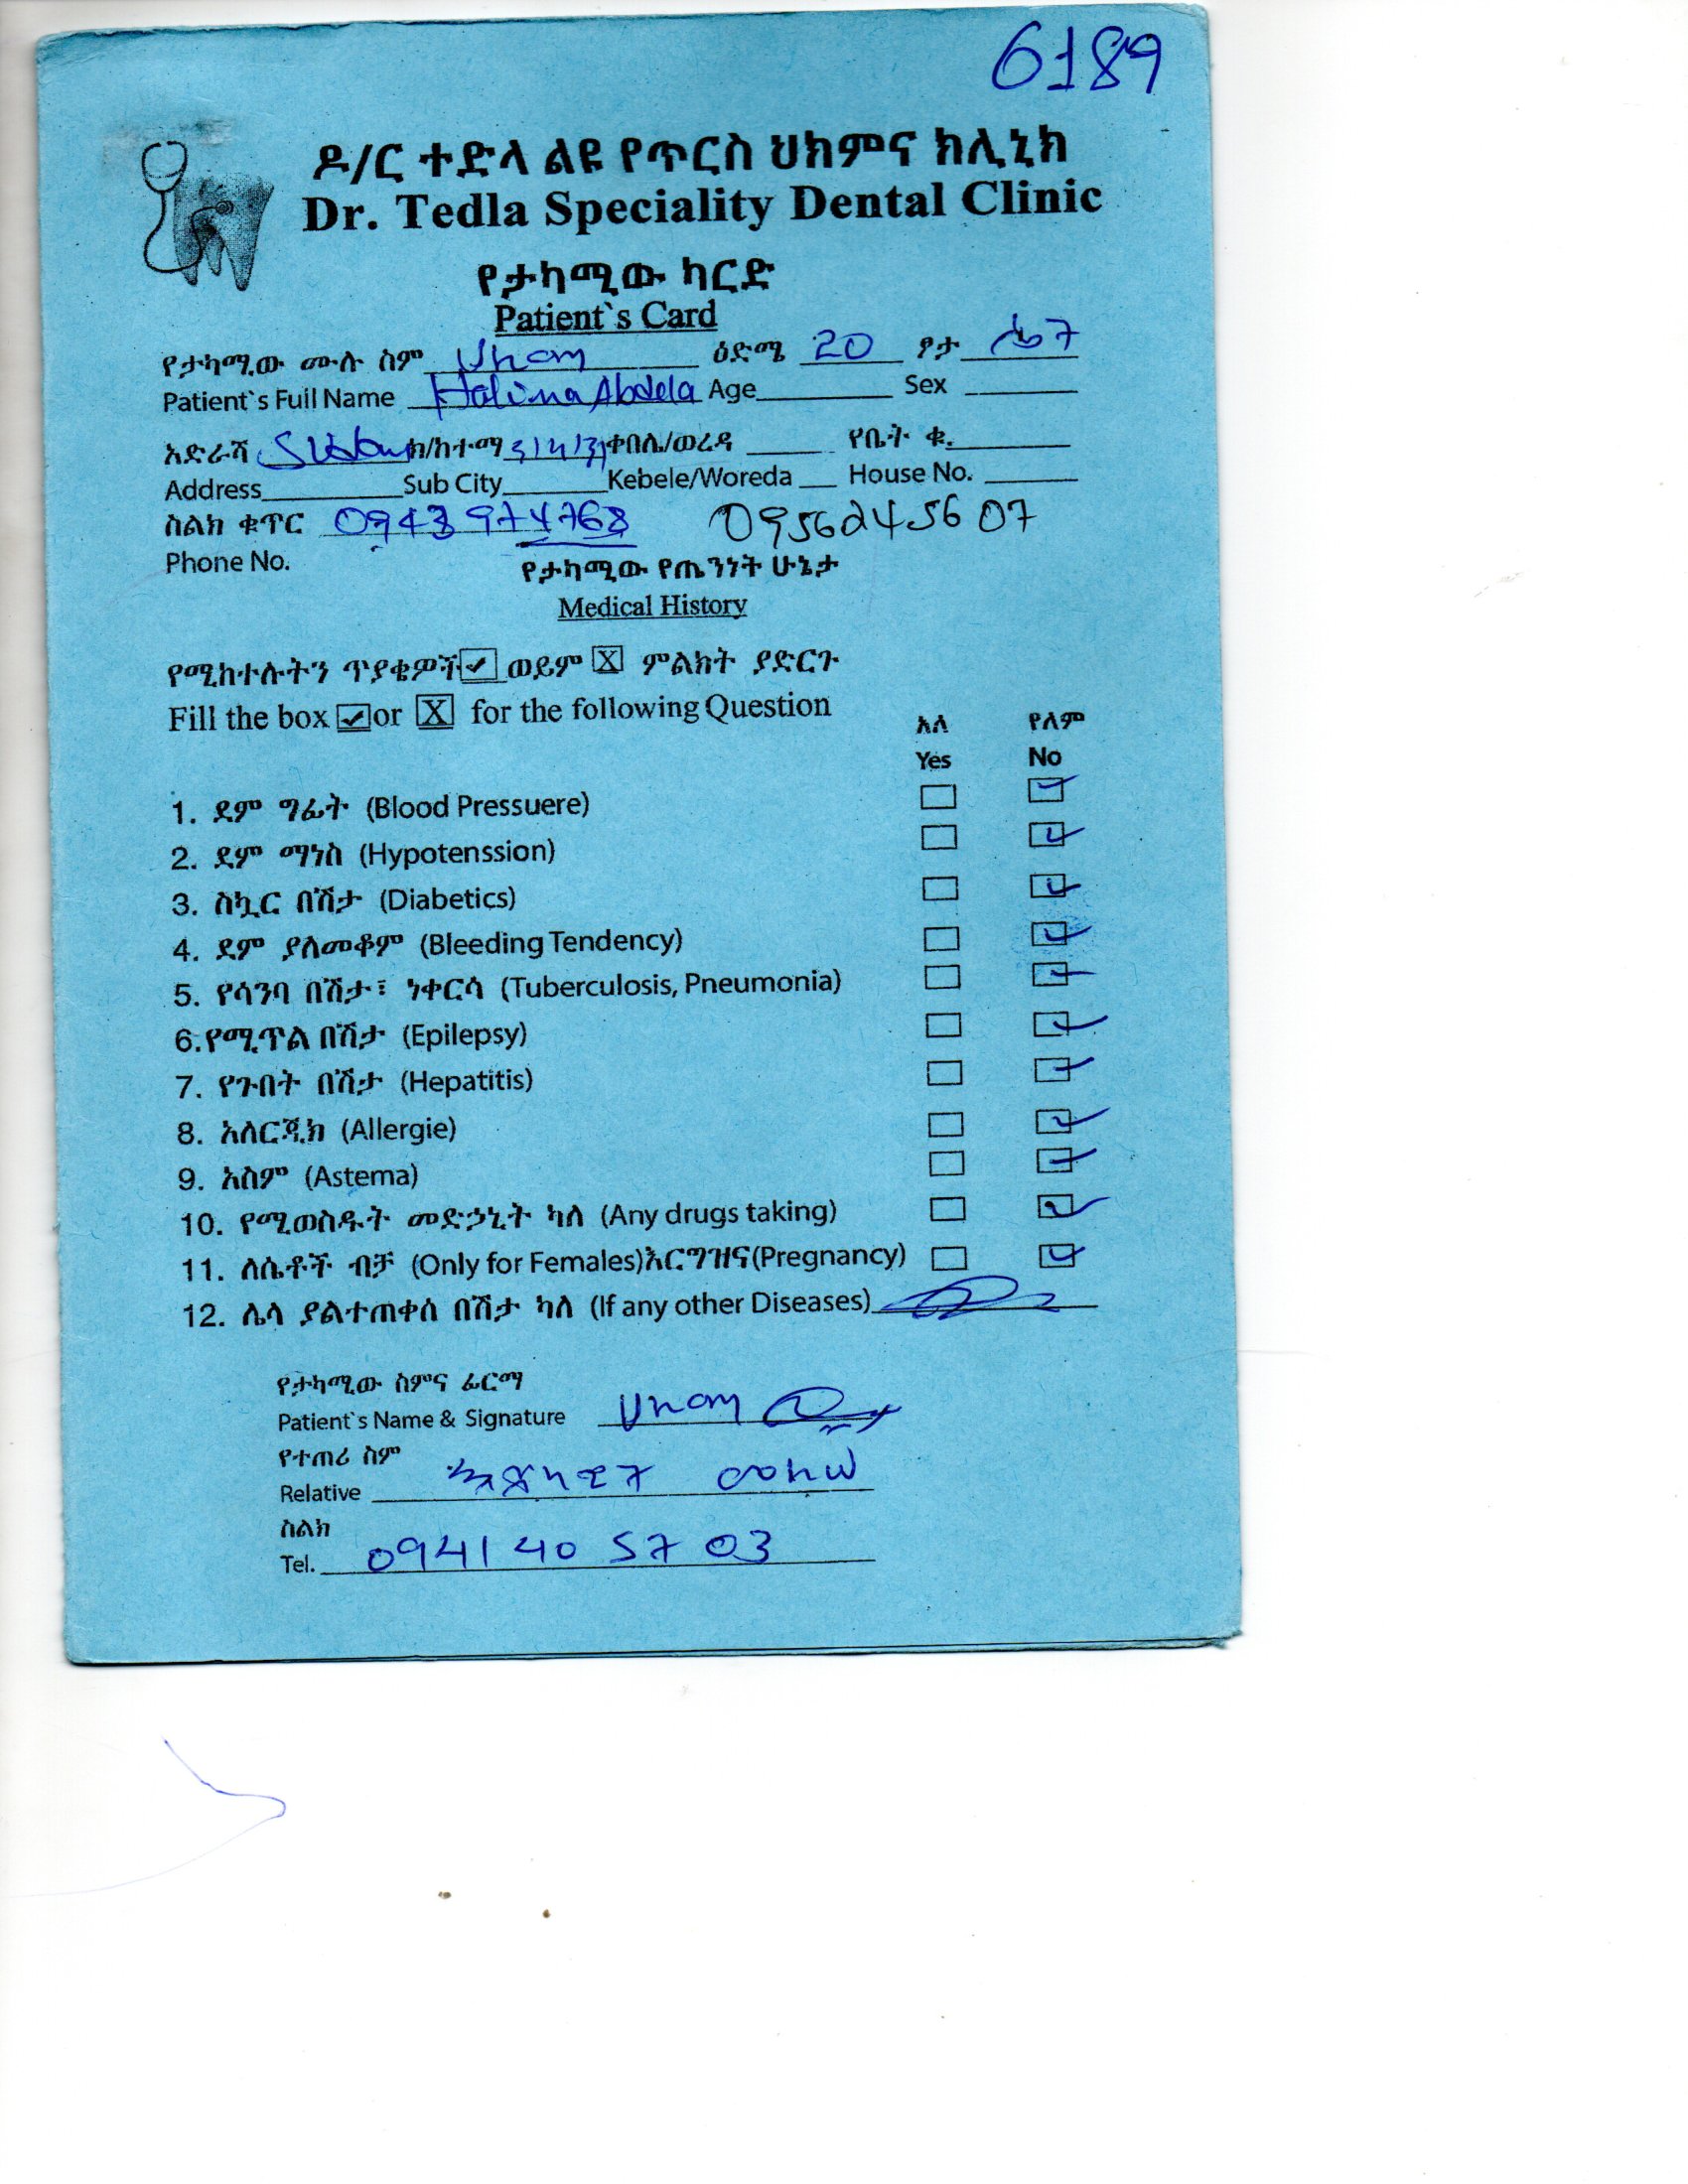 6189
ዶ/ር ተድላ ልዩ የጥርስ ህክምና ክሊኒክ
Dr. Tedla Speciality Dental Clinic
የታካሚው ካርድ
Patient`s Card
የታካሚው ሙሉ ስም ዕድሜ 20 ፆታ
Patient`s Full Name Halima Abdela Age Sex
አድራሻ ክ/ከተማ ቀበሌ/ወረዳ የቤት ቁ.
Address Sub City Kebele/Woreda House No.
ስልክ ቁጥር 0943974768 0956245607
Phone No.
የታካሚው የጤንነት ሁኔታ
Medical History
የሚከተሉትን ጥያቄዎች ወይም X ምልክት ያድርጉ
Fill the box or X for the following Question
አለ የለም
Yes No
1. ደም ግፊት (Blood Pressuere)
2. ደም ማነስ (Hypotenssion)
3. ስኳር በሽታ (Diabetics)
4. ደም ያለመቆም (Bleeding Tendency)
5. የሳንባ በሽታ፣ ነቀርሳ (Tuberculosis, Pneumonia)
6.የሚጥል በሽታ (Epilepsy)
7. የጉበት በሽታ (Hepatitis)
8. አለርጂክ (Allergie)
9. አስም (Astema)
10. የሚወስዱት መድኃኒት ካለ (Any drugs taking)
11. ለሴቶች ብቻ (Only for Females)እርግዝና(Pregnancy)
12. ሌላ ያልተጠቀሰ በሽታ ካለ (If any other Diseases)
የታካሚው ስምና ፊርማ
Patient`s Name & Signature
የተጠሪ ስም
Relative
ስልክ
Tel. 0941 40 57 03